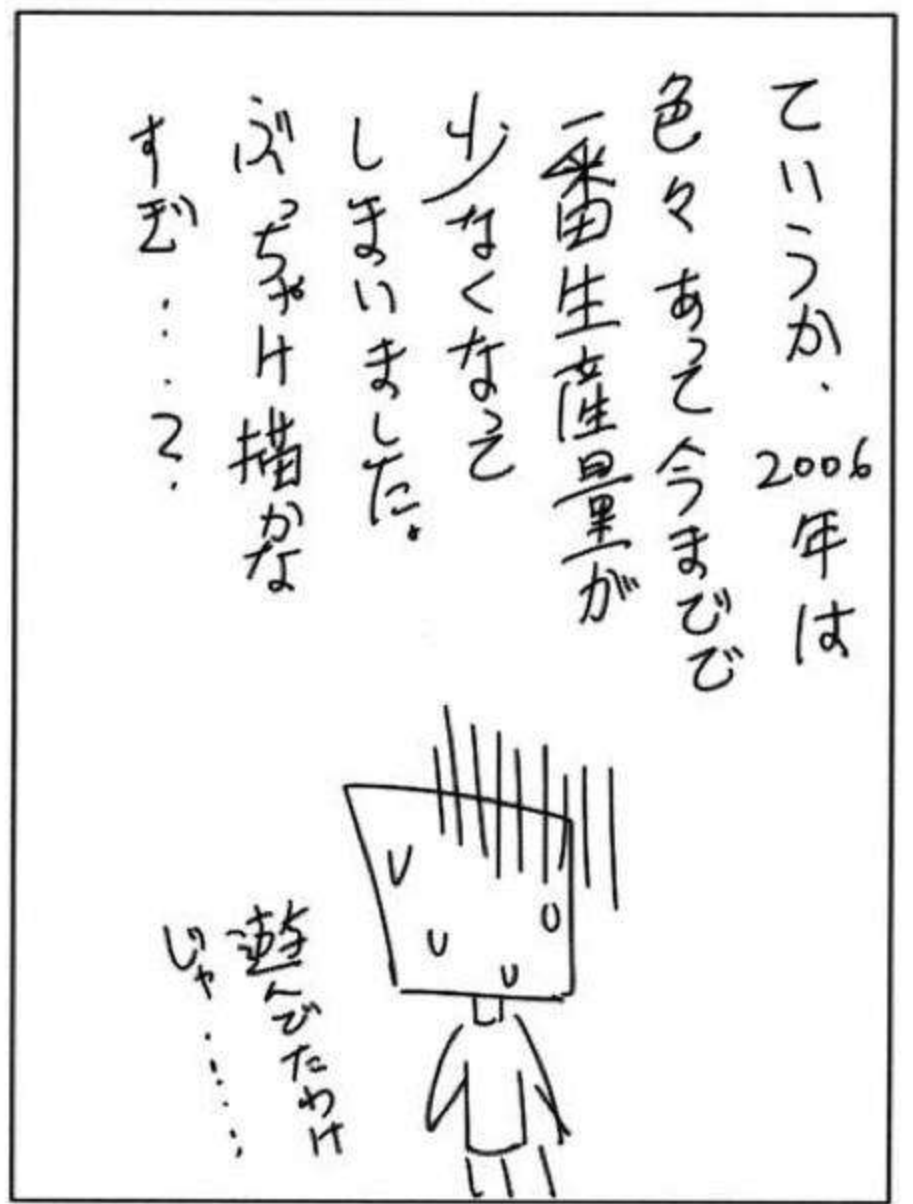 ていうか、2006年は
色々あって今までで
一番生産量が
少なくなって
しまいました。
ぶっちゃけ描かな
すぎ・・・?
遊んでたわけ
じゃ・・・・・